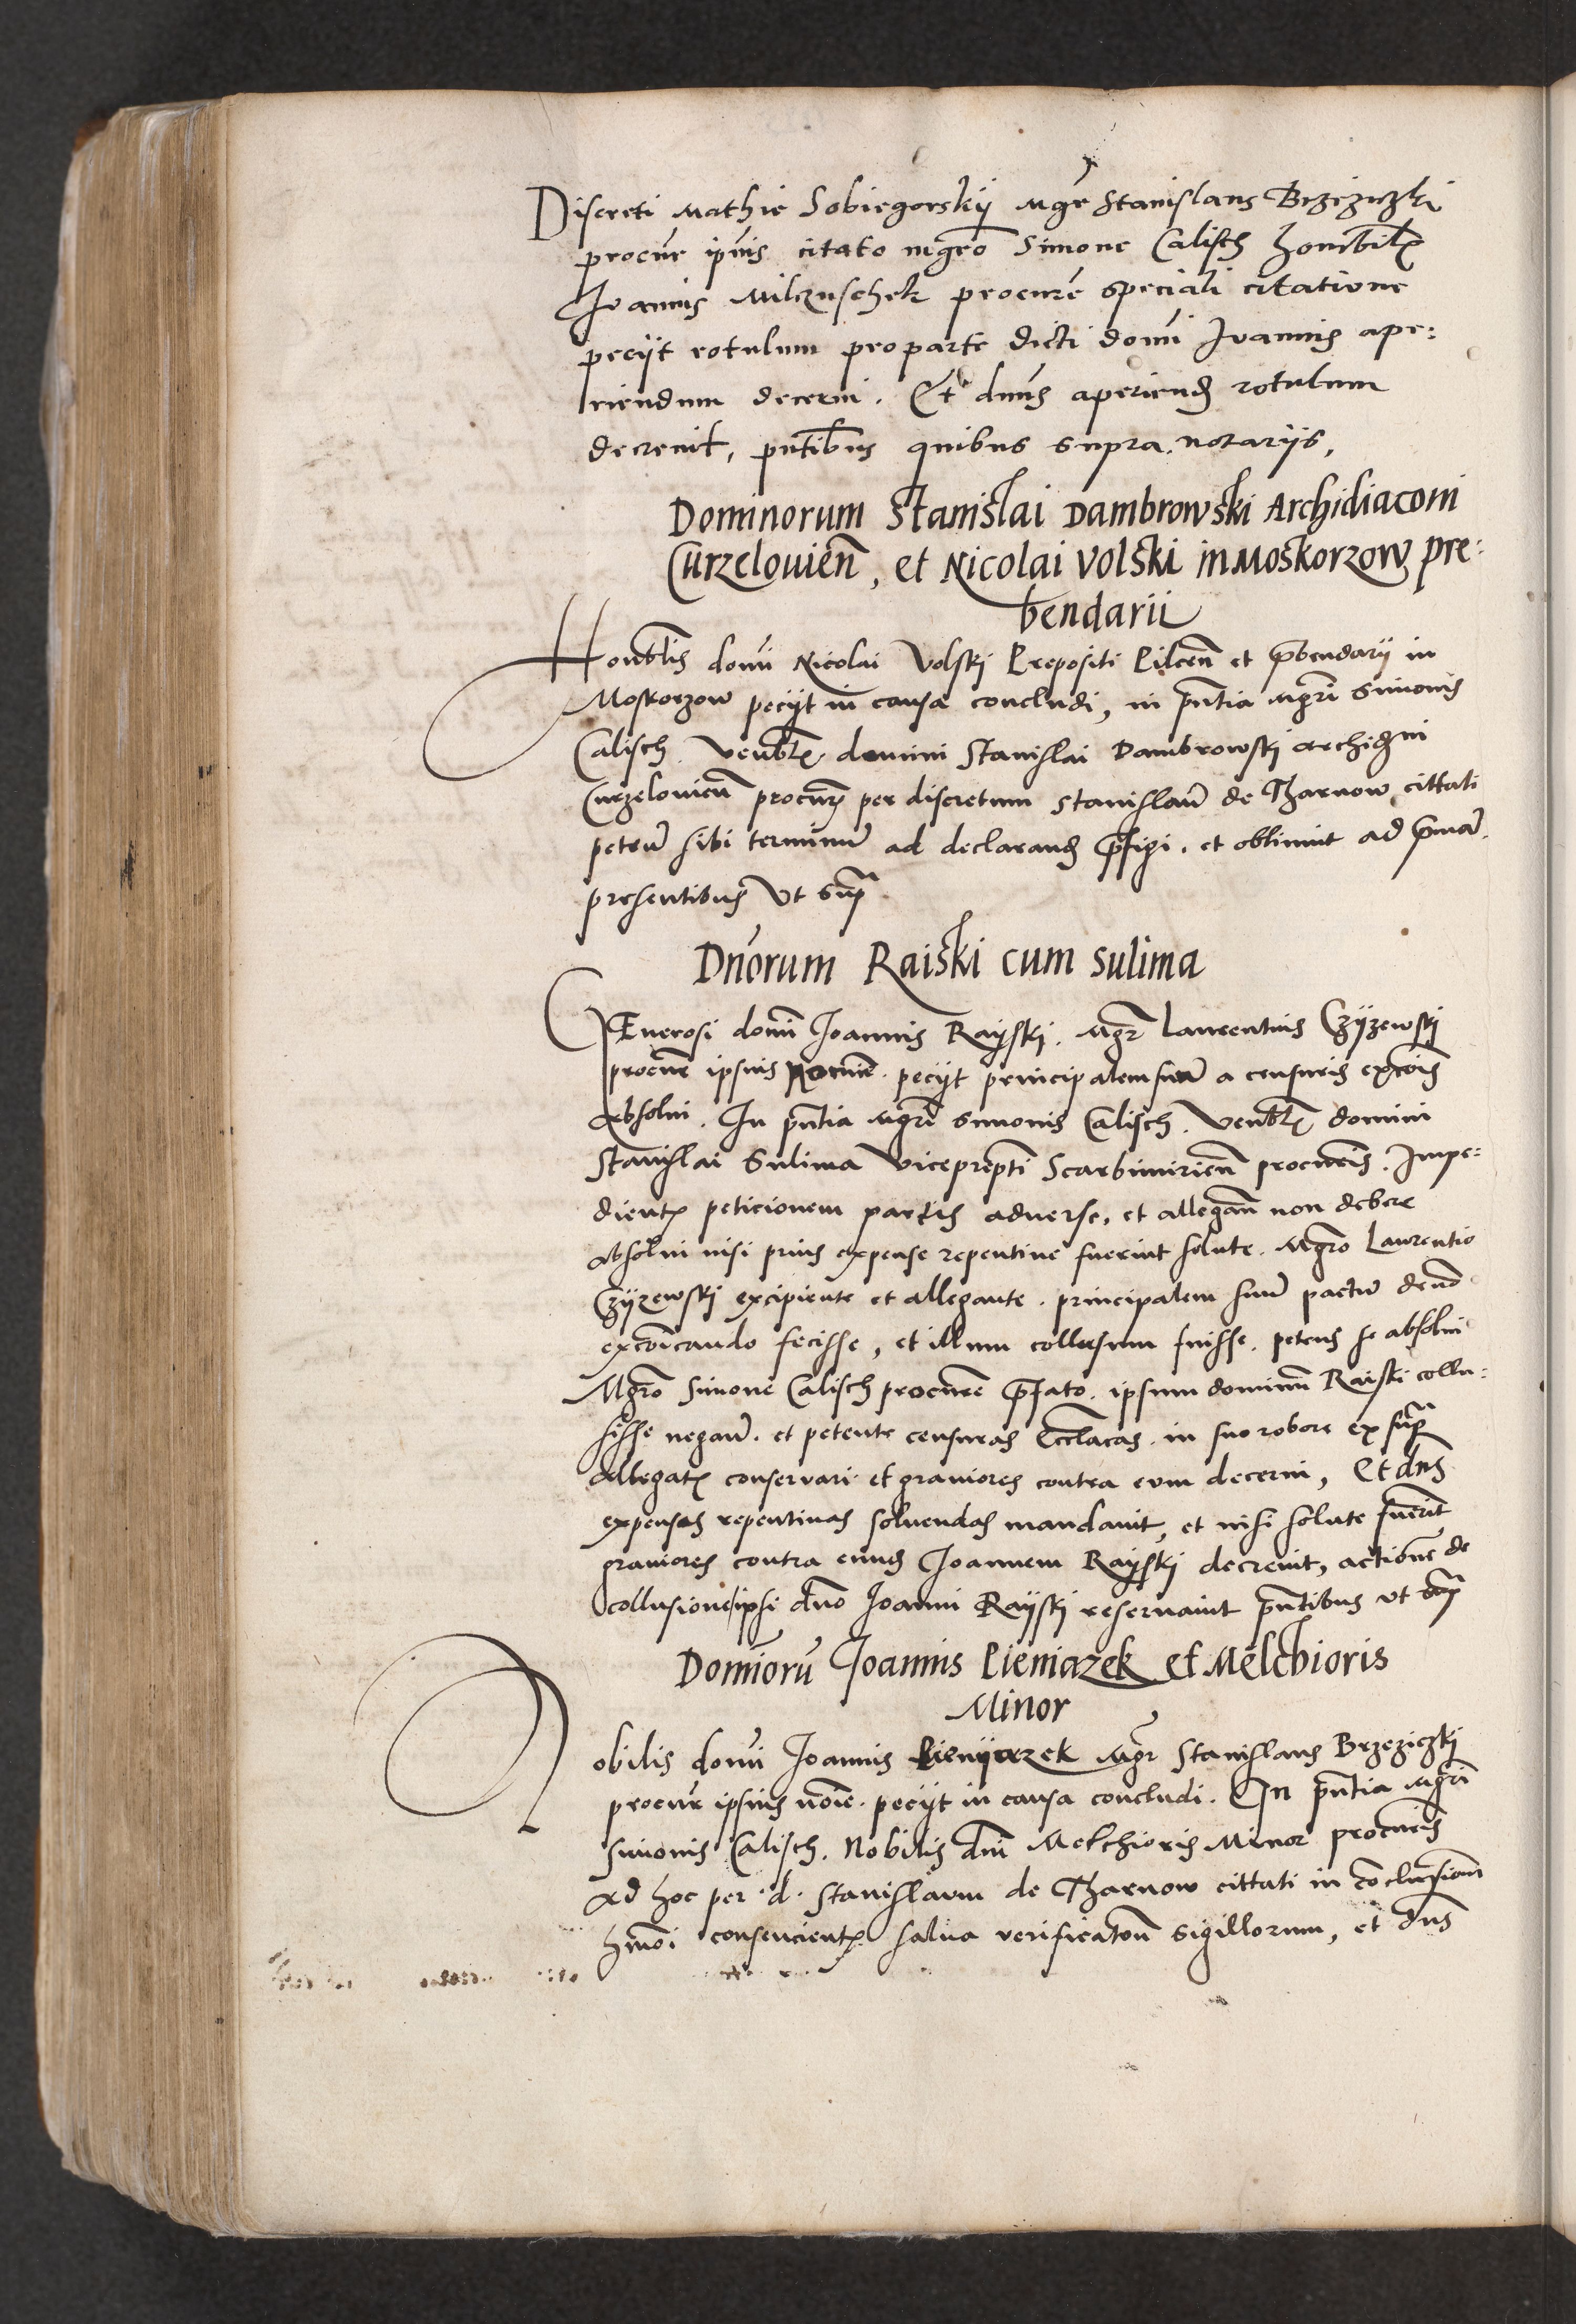 Discreti Mathie Sobiegorskij Mgr Stanislaus Brzeziczki
procur ipius citato mgro Simone Calisch honorabilis
Joannis Milczuschek procure speciali citatione
pecijt rotulum pro parte dicti domi Joannis ape:
riendum decerni. Et dnus aperiend rotulum
decrevit, pntibus quibus supra notarijs,
Dominorum Stanislai Dambrowski Archidiaconi
Curzelouien, et Nicolai Volski in Moskorzow pre:
bendarii
Honblis domi Nicolai Volskj Prepositi Pilcen et prbendarij in
Moskorzow pecijt in causa concludi, in pntia Mgri Simonis
Calisch. venblis domini Stanislai Dambrowskj archidni
Curzelouien procuris per discretum Stanislau de Tharnow cittati
petieru sibi terminu ad declarand prfigi. et obtinuit ad prima.
presentibus vt supra
Dnorum Raiski cum Sulima
Generosi domi Joannis Rayskj. Mgr Laurentius Czyzewskj
procur ipsius nomine pecijt principalem suu a censuris excois
absolui. In pntia Mgri Simonis Calisch. Venblis domini
Stanislai Sulima Viceprepti Scarbimirien procuris. Impe:
dientis peticionem partis aduerse, et allegan non debere
absolui nisi prius expense repentine fuerint solute. Mgro Laurentio
Czyzewskj excipiente et allegante. principalem suu pactu de no
excoicando fecisse, et illum collusum fuisse. petens se absolui
Mgro Simone Calisch procure prfato. ipsum dominu Raiski collu:
sisse negan. et petente censuras Ecclacas. in suo robore ex supra
allegatis conseruari et grauiores contra eum decerni, Et dns
expensas repentinas soluendas mandauit, et nisi solute fuerint
grauiores contra eundem Joannem Rayskj decreuit, actione de
collusione ipsi dno Joanni Rayskj reseruauit pntibus vt supra
Dominoru Joannis Pieniazek et Melchioris
Minor
Nobilis domi Joannis Pienijazek Mgr Stanislaus Brzeziczkj
procur ipsius noie. pecijt in causa concludi. In pntia Mgri
Simonis Calisch. Nobilis dni Melchioris Minor procuris
ad hoc per d. Stanislaum de Tharnow cittati in coclusionem
hmoi consencientis salua verificatone sigillorum, et dns